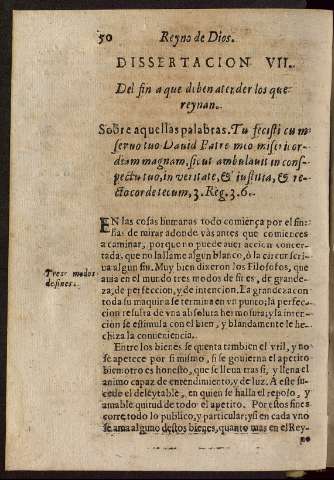 50 Reyno de Dios.
DISSERTACION VII.
Del fin a que deben atender los que
reynan.
Sobre aquellas palabras. Tu fecisti cum
servo tuo David Patre meo misericor-
diam magnam, sicut ambulavit in cons-
pectu tuo, in veritate, & iustitia, & re-
cto corde tecum, 3. Reg. 3. 6.
EN las cosas humanas todo comiença por el fin:
has de mirar adonde vas antes que comiences
a caminar, porque no puede auer accion concer-
tada, que no la llame algun blanco, ò la circunscri-
va algun fin. Muy bien dixeron los Filosofos, que
auia en el mundo tres modos de fines, de grande-
za, de perfeccion, y de intencion. La grandeza con
toda su maquina se termina en vn punto; la perfec-
cion resulta de vna absoluta hermosura, y la inten-
cion se estimula con el bien, y blandamente le he-
chiza la conveniencia.
Tres modos
de fines.
Entre los bienes se quenta tambien el vtil, y no
se apetece por si mismo, si se gouierna el apetito
bien: otro es honesto, que se lleva tras si, y llena el
animo capaz de entendimiento, y de luz. A este su-
cede el deleytable, en quien se halla el reposo, y
amable quitud de todo el apetito. Por estos fines
corre todo lo publico, y particular; y si en cada vno
se ama alguno destos bienes, quanto mas en el Rey-
no